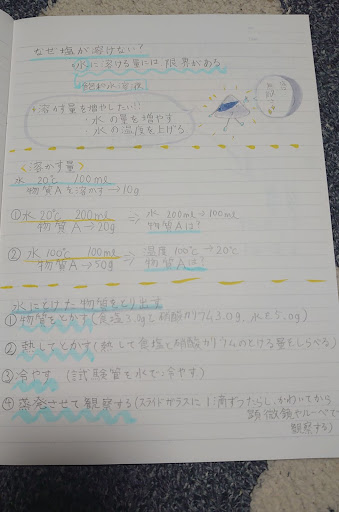 なぜ塩が溶けない?
・水に溶ける量には限界がある
飽和水溶液
※溶かす量を増やしたい!!
・水の量を増やす
・水の温度を上げる
〈溶かす量〉
水 20℃ 100ml
物質Aを溶かす→10g
①水 20℃ 200ml ⇒ 水 200ml→100ml
物質A→20g 物質Aは?
②水 100℃ 100ml ⇒ 温度 100℃→20℃
物質A→50g 物質Aは?
水にとけた物質をとり出す
①物質をとかす(食塩3.0gと硝酸カリウム3.0g、水を5.0g)
②熱してとかす(熱して食塩と硝酸カリウムのとける量をしらべる)
③冷やす (試験管を水で冷やす)
④蒸発させて観察する(スライドガラスに1滴ずつたらし、かわいてから
顕微鏡やルーペで
観察する)